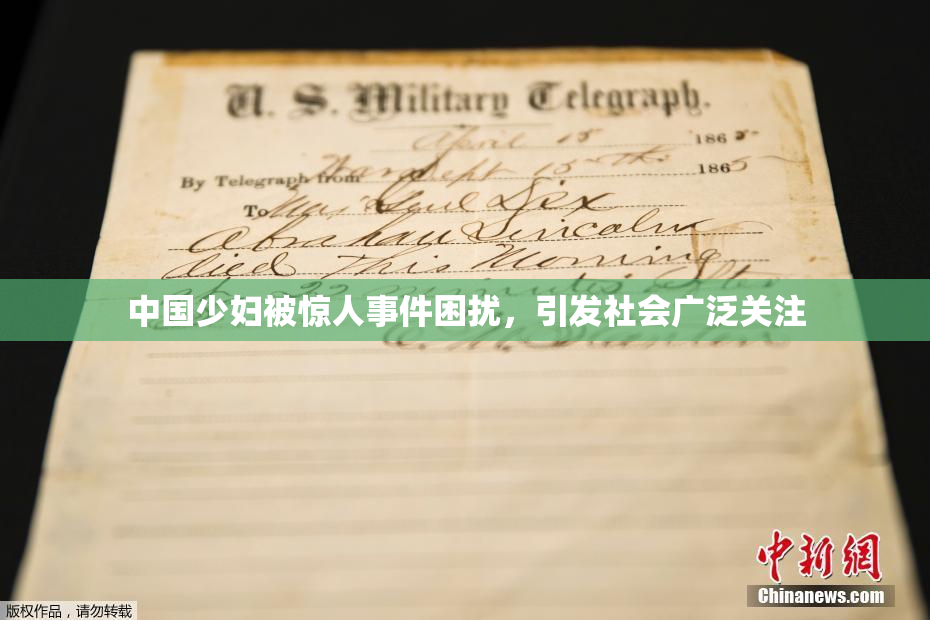 U. S. Military Telegraph.
April 15 1865
By Telegraph from War Dept 15th 1865
To Maj Genl Dix
Abraham Lincoln
died This Morning
22 minutes after
中国少妇被惊人事件困扰，引发社会广泛关注
E. M. Stanton
中新网
Chinanews.com
版权作品，请勿转载